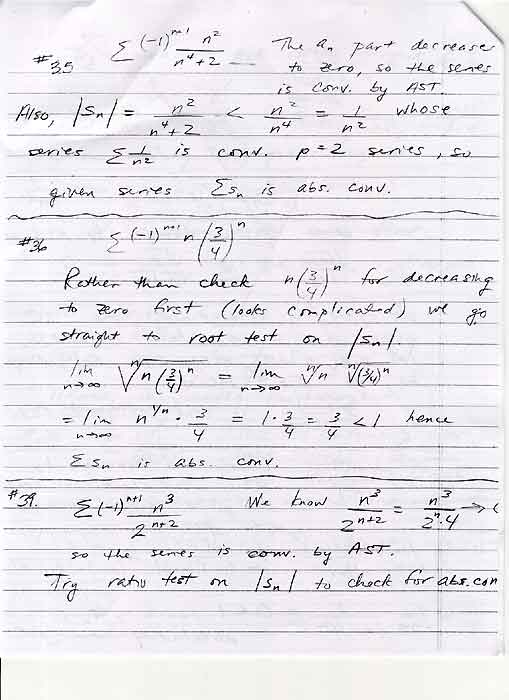 #35 Σ(-1)^(n+1) n²/(n⁴+2) The aₙ part decreases
to zero, so the series
is conv. by AST.
Also, |sₙ| = n²/(n⁴+2) < n²/n⁴ = 1/n² whose
series Σ 1/n² is conv. p=2 series, so
given series Σsₙ is abs. conv.
#36 Σ(-1)^(n+1) n(3/4)^n
Rather than check n(3/4)^n for decreasing
to zero first (looks complicated) we go
straight to root test on |sₙ|.
lim n→∞ ⁿ√(n(3/4)^n) = lim n→∞ ⁿ√n ⁿ√((3/4)^n)
= lim n→∞ n^(1/n) · 3/4 = 1·3/4 = 3/4 < 1 hence
Σsₙ is abs. conv.
#39. Σ(-1)^(n+1) n³/2^(n+2) We know n³/2^(n+2) = n³/(2^n·4) →
so the series is conv. by AST.
Try ratio test on |sₙ| to check for abs. con